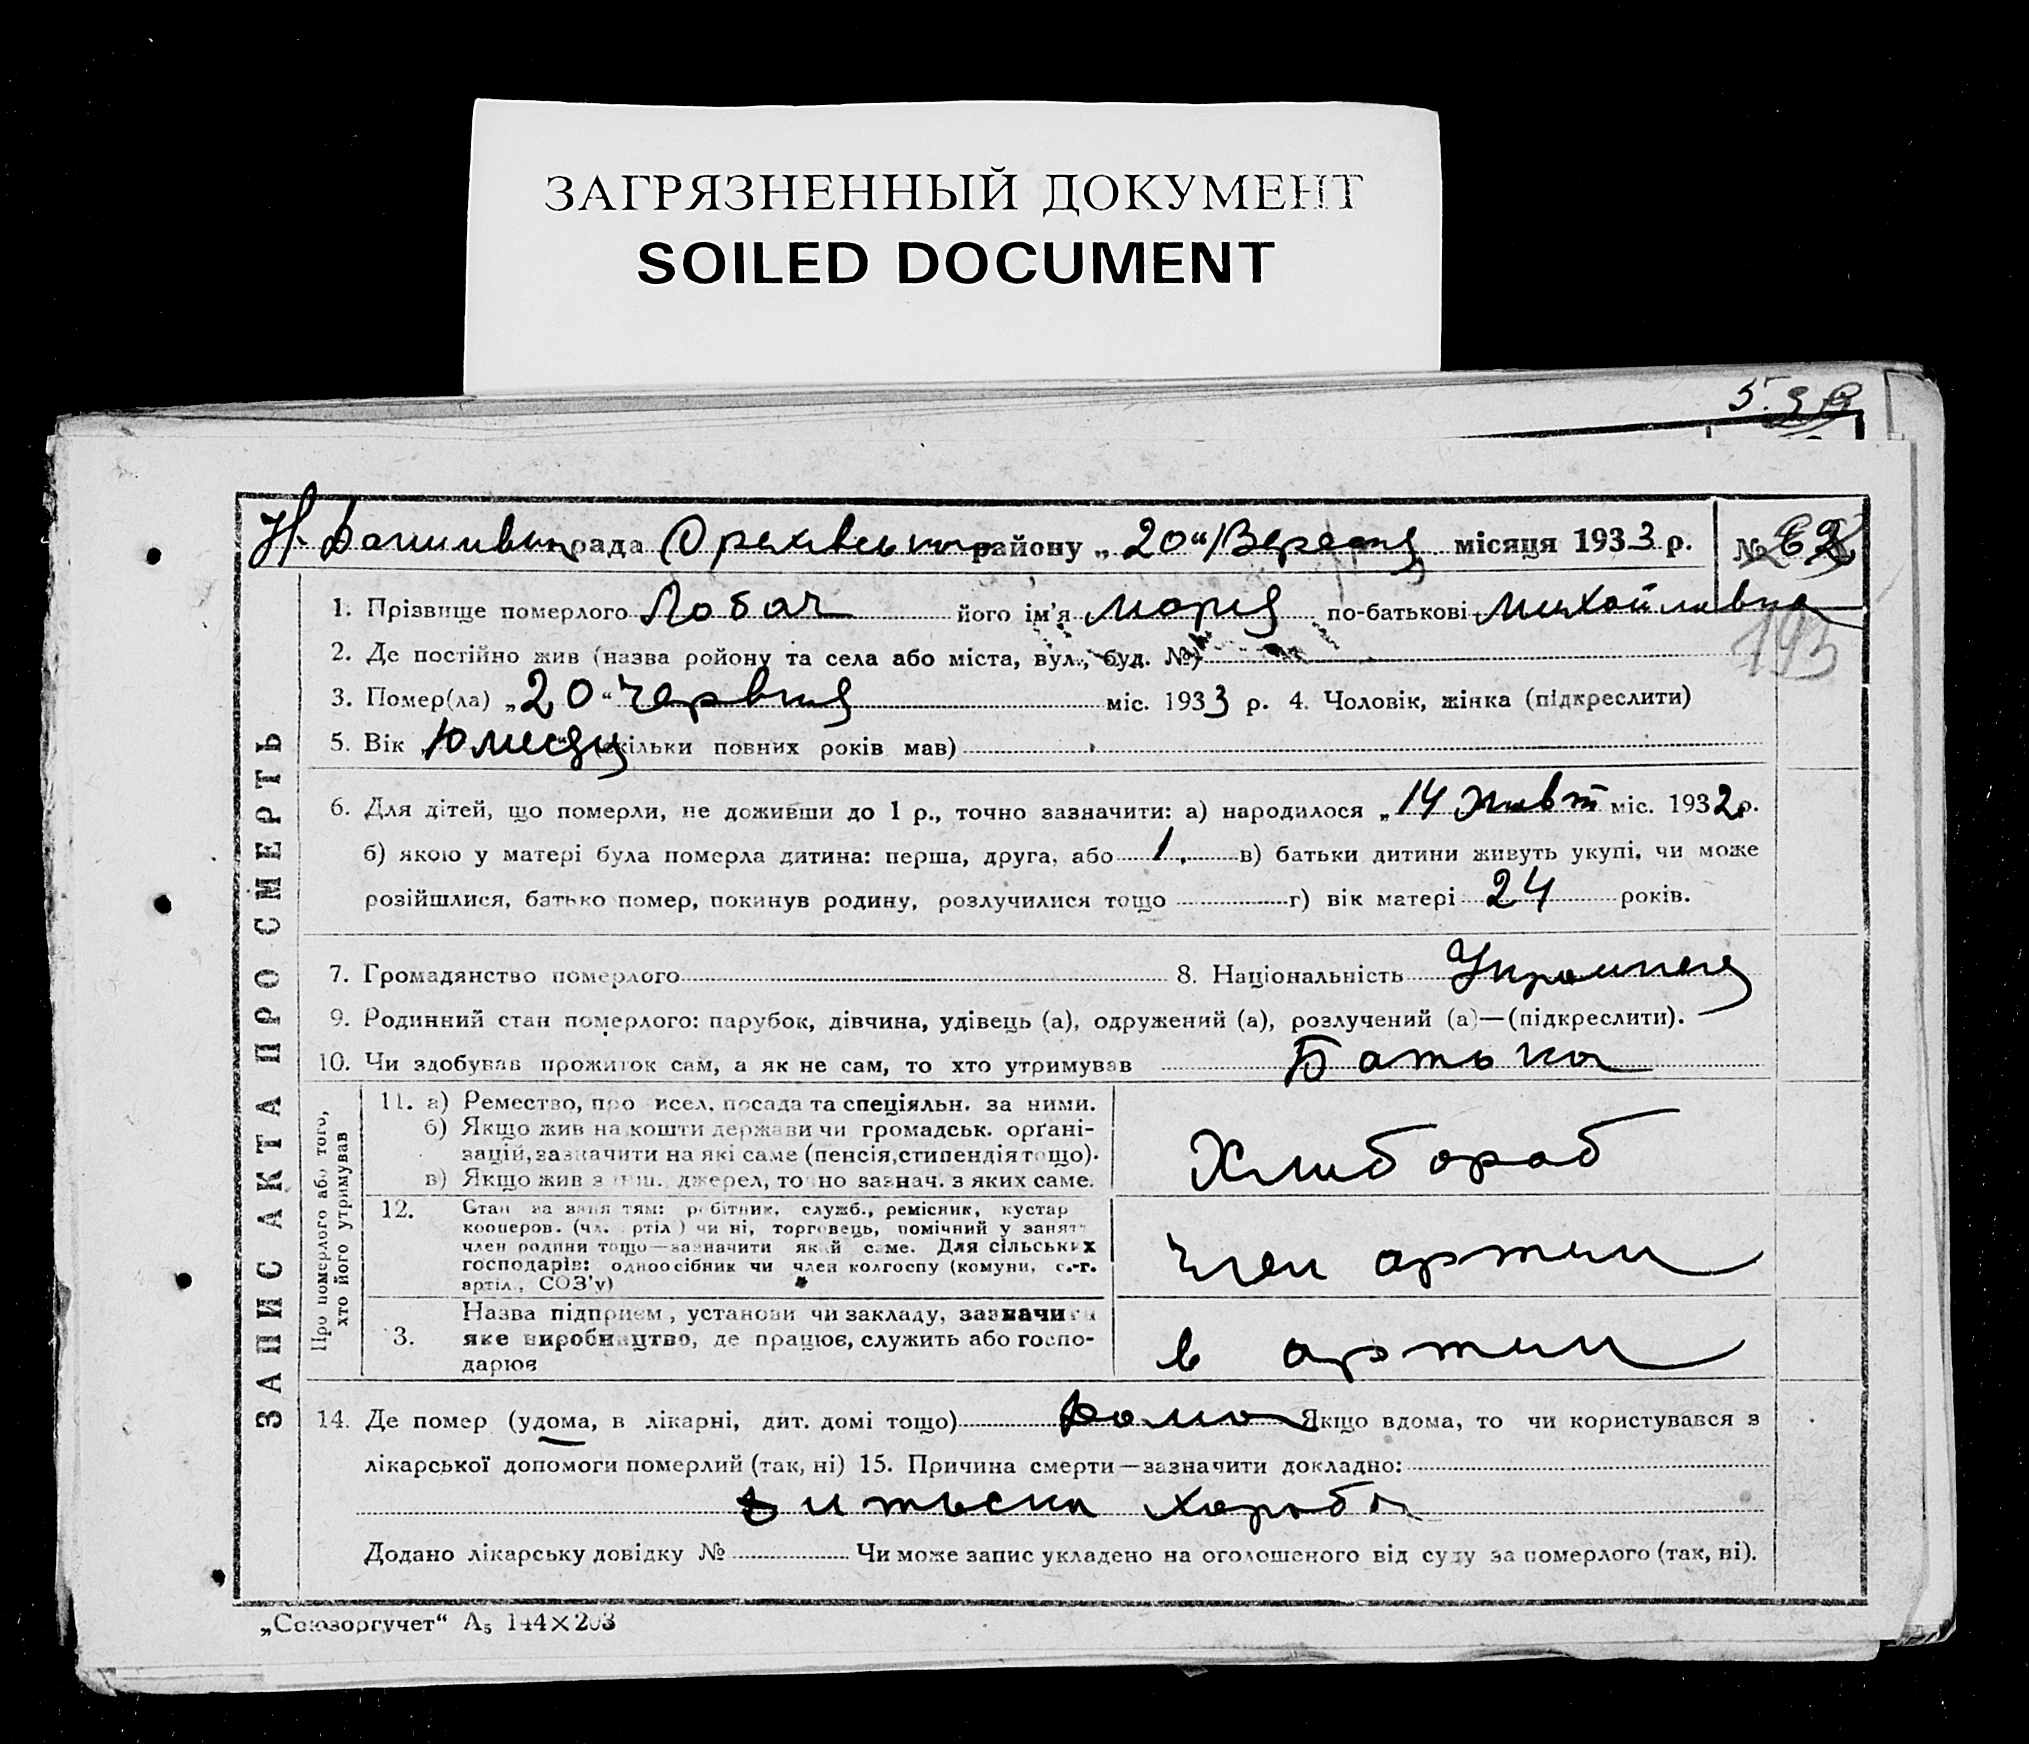 ЗАГРЯЗНЕННЫЙ ДОКУМЕНТ
SOILED DOCUMENT
рада Оріхівського району „20“ Вересня місяця 1933 р. №
193
1. Прізвище померлого Лобач його ім'я Марія по-батькові Михайлівна
2. Де постійно жив (назва ройону та села або міста, вул., буд. №)
3. Помер(ла) „20“ червня міс. 1933 р. 4. Чоловік, жінка (підкреслити)
5. Вік (скільки повних років мав)
6. Для дітей, що померли, не доживши до 1 р., точно зазначити: а) народилося „14 жовт міс. 1932 р.
б) якою у матері була померла дитина: перша, друга, або 1. в) батьки дитини живуть укупі, чи може
розійшлися, батько помер, покинув родину, розлучилися тощо г) вік матері 24 років.
7. Громадянство померлого 8. Національність
9. Родинний стан померлого: парубок, дівчина, удівець (а), одружений (а), розлучений (а)—(підкреслити).
10. Чи здобував прожиток сам, а як не сам, то хто утримував Батько
ЗАПИС АКТА ПРО СМЕРТЬ
Про померлого або того, хто його утримував
11. а) Ремество, про исел. посада та спеціяльн. за ними.
б) Якщо жив на кошти держави чи громадськ. орґані-
зацій, зазначити на які саме (пенсія, стипендія тощо).
в) Якщо жив з інш. джерел, точно зазнач. з яких саме.
Хлибороб
12. Стан за заняттям: робітник, служб., ремісник, кустар
кооперов. (чл. артіл.) чи ні, торговець, помічний у занятт
член родини тощо—зазначити який саме. Для сільських
господарів: одноосібник чи член колгоспу (комуни, с.-г.
артіл., СОЗ'у)
член артили
3. Назва підприєм, установи чи закладу, зазначити
яке виробництво, де працює, служить або госпо-
дарює
в артили
14. Де помер (удома, в лікарні, дит. домі тощо) дома Якщо вдома, то чи користувався з
лікарської допомоги померлий (так, ні) 15. Причина смерти—зазначити докладно:
дитьска хороба
Додано лікарську довідку № Чи може запис укладено на оголошеного від суду за померлого (так, ні).
„Союзоргучет“ А5 144×203